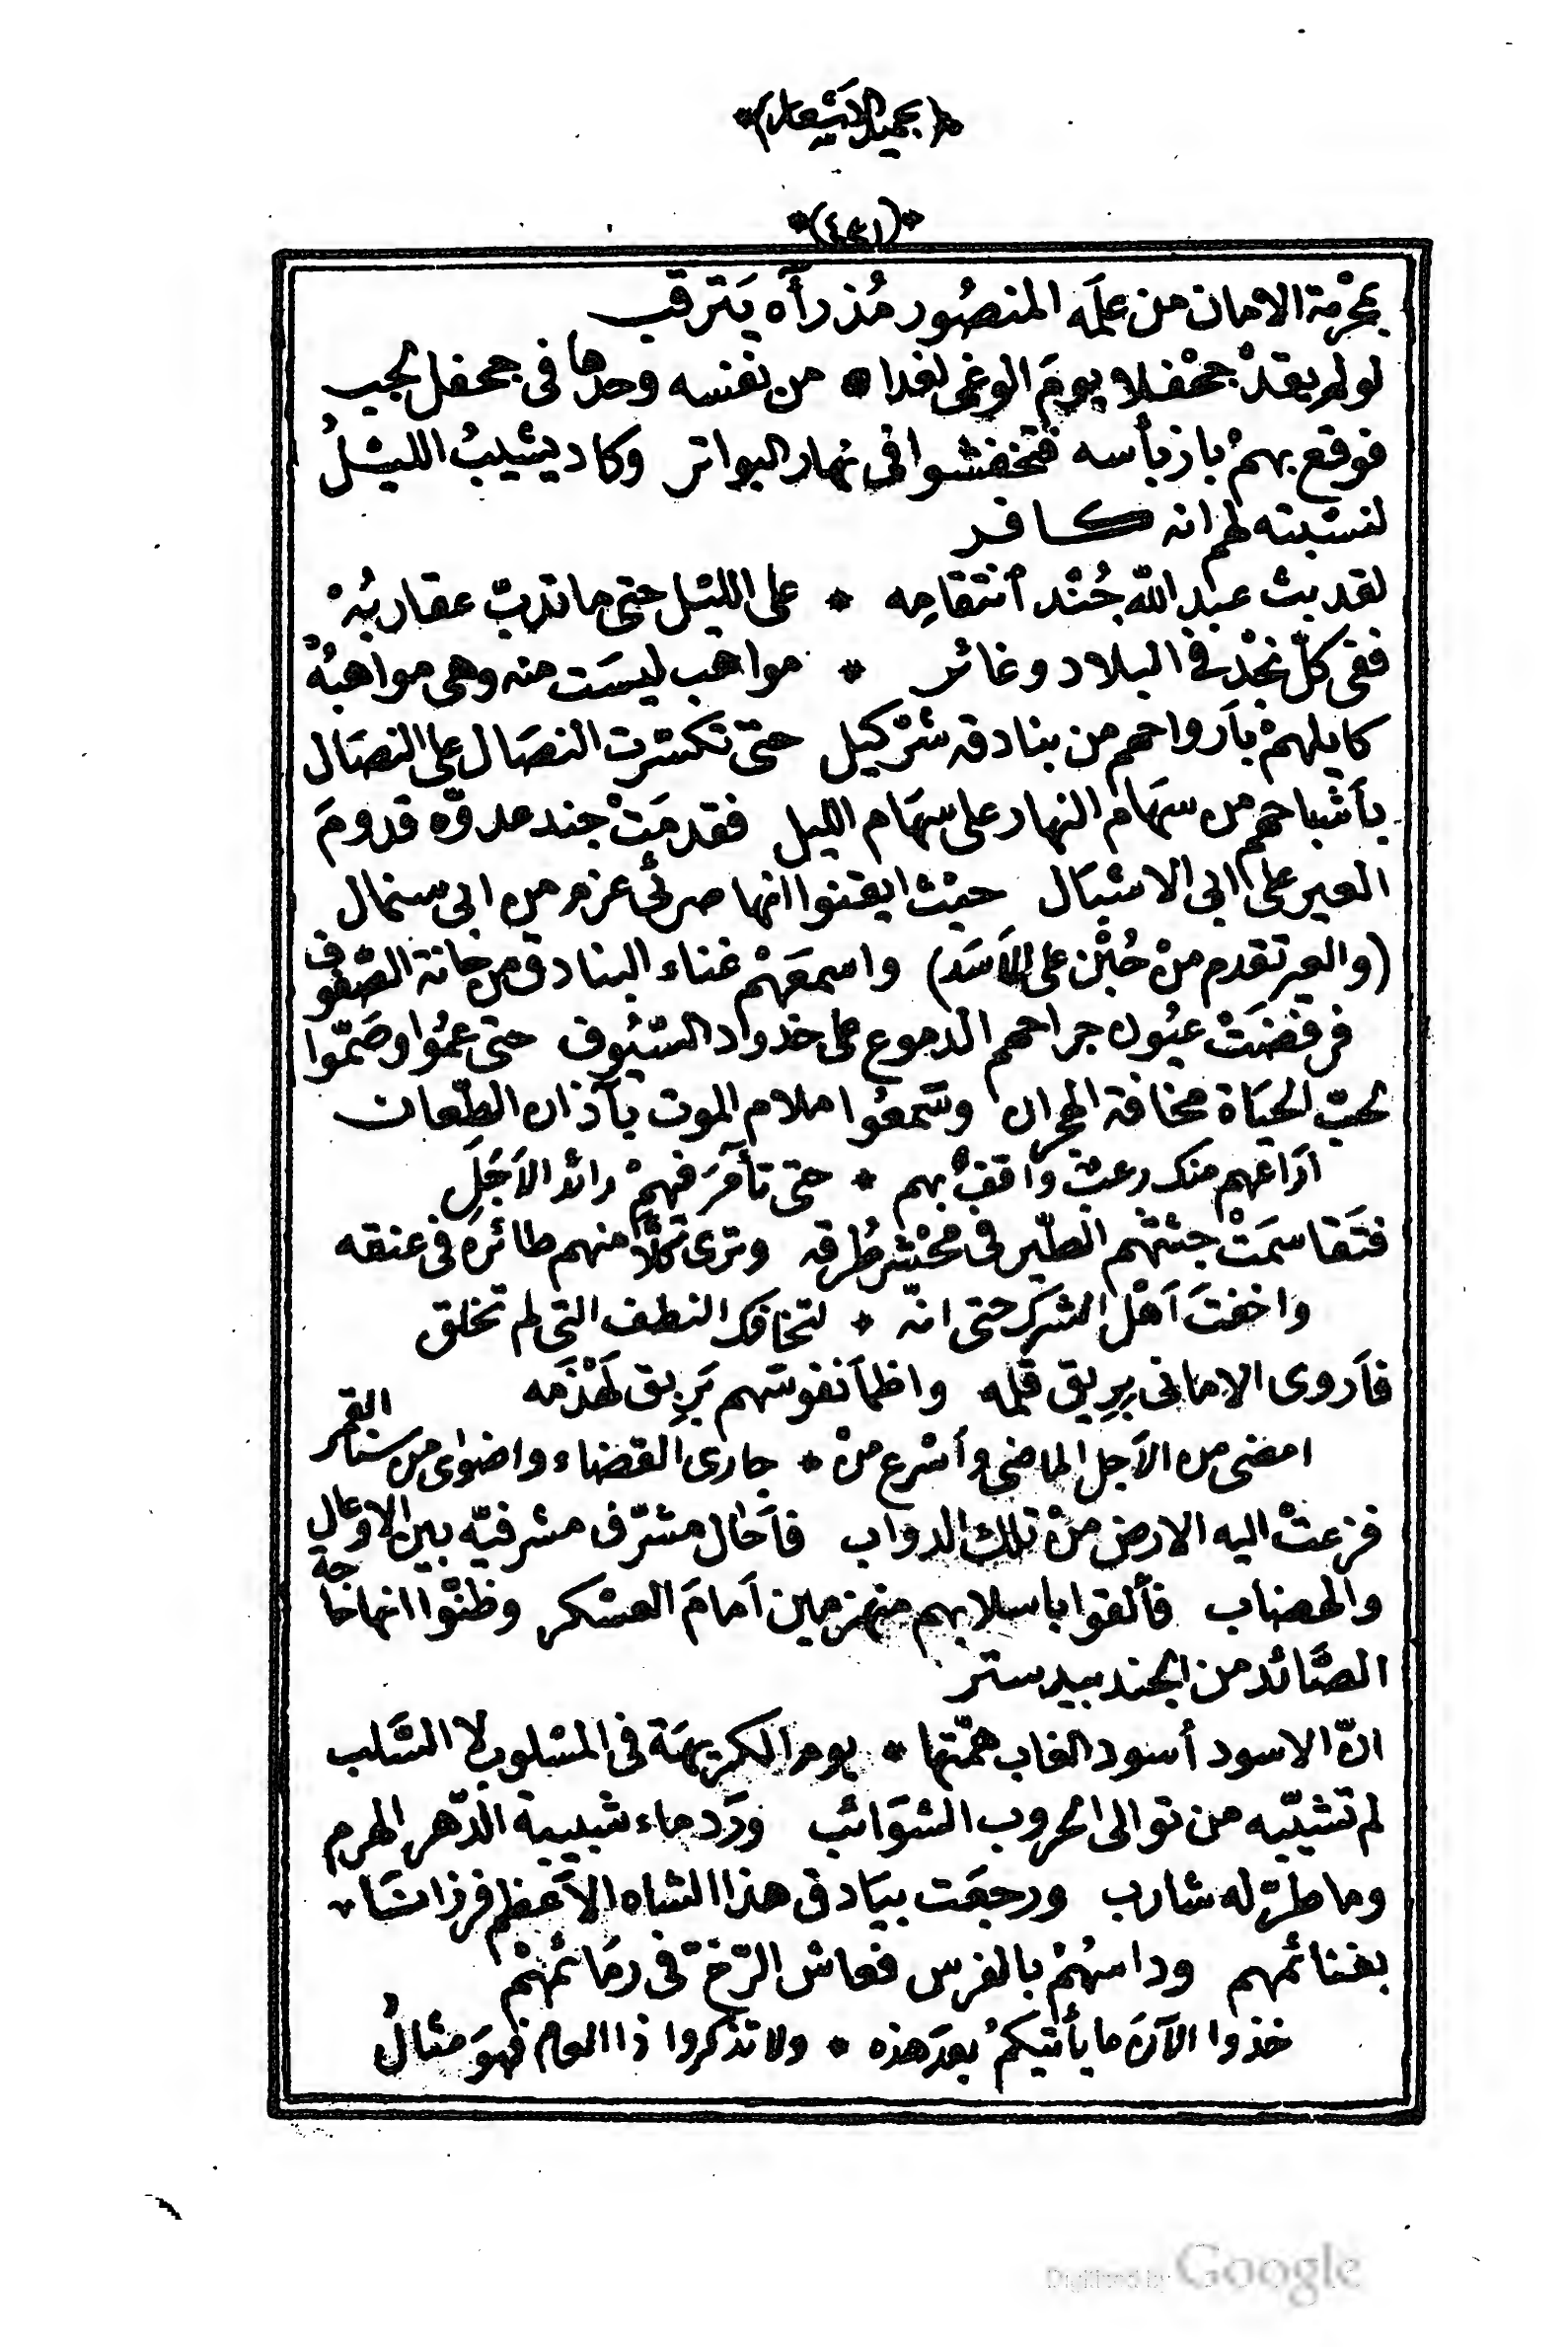 ﴿بجميل الاشعار﴾
*(٤٢١)*
بمحْرمة الامان من علمَه المنصُور مُذ رأٰه يَترقب
لو لم يقدْ جحْفلا يومَ الوغى لغدا * من نفسه وحدها فى جحفل لجب
فوقع بهمْ باز بأسه فتخفشوا فى نهار البواتر وكاد يشيبُ الليْلُ
لنسْبته لهم انه كافر
لقد بث عبد الله جُنْد ٱنتقامِه * على الليْل حتى ما تدبّ عقاربُهْ
ففى كلّ نجْد فى البلاد وغائر * مواهب ليسَت منه وهى مواهبُهْ
كايلهمْ بأَرواحهم من بنادقه شرّ كيل حتىّ تكسّرت النصَال على النصَال
بأَشباحهم من سهَام النهار على سهَام الليل فقدمَتْ جند عدوّه قدومَ
العير على ابى الاشبَال حيْث ايقنوا انها صرئى عزم من ابى سنمال
(والعير تقدم منْ حُبْن على الأَسَد) واسمعَهمْ غناء البنادق من حانة الصّفوف
فرفضَتْ عيُون جراحهم الدموع على خدود السّيُوف حتى عمُوا وصَمّوا
لحبّ الحيَاة مخافة الهجران وسَمعُوا ملام الموت بآذان الطّعان
اراعهم منك رعب واقفٌ بهم * حتى تأمّرَ فيهمْ رائد الاَجَلِ
فتَقاسمَتْ جثثهم الطّير فى محْشر طُرقه وترى كُلًّا منهم طائرَه فى عنقه
واخفتَ اَهْل الشرك حتى انّه * لتخافك النطف التى لم تخلق
فأَروى الامانى بِرِيق قلمه واظمأ نفوسَهم بَرِيق لَهْذَمه
امضى من الاَجل الماضى وأسْرع منْ * جارى القضاء واضوٰى من سنا القمر
فزعتْ اليه الارض منْ تلك الدواب فأَحال مشرّف مشرفيّه بين الاوعال
والهضاب فأَلقوا باسلابهم منهزمين اَمامَ العسْكر وظنّوا انها حاجة
الصَّائد من الجندبيدستر
انّ الاسود أسود الغاب همّتها * يوم الكريهَة فى المسْلوب لا السَّلب
لم تشيّبه من توالى الحروب الشوَائب وردَ ماء شبيبة الدّهر الهرم
وما طرّ له شارب ورجعَت بيَادق هذا الشاه الاَعظم فرزانَات
بغنائمهم وداسهُمْ بالفرس فعاش الرّخّ فى رمَائمهمْ
خذوا الآنَ ما يأتيكمُ بعدَ هذه * ولا تذكروا ذا العام فهوَ مثالُ
Digitized by Google